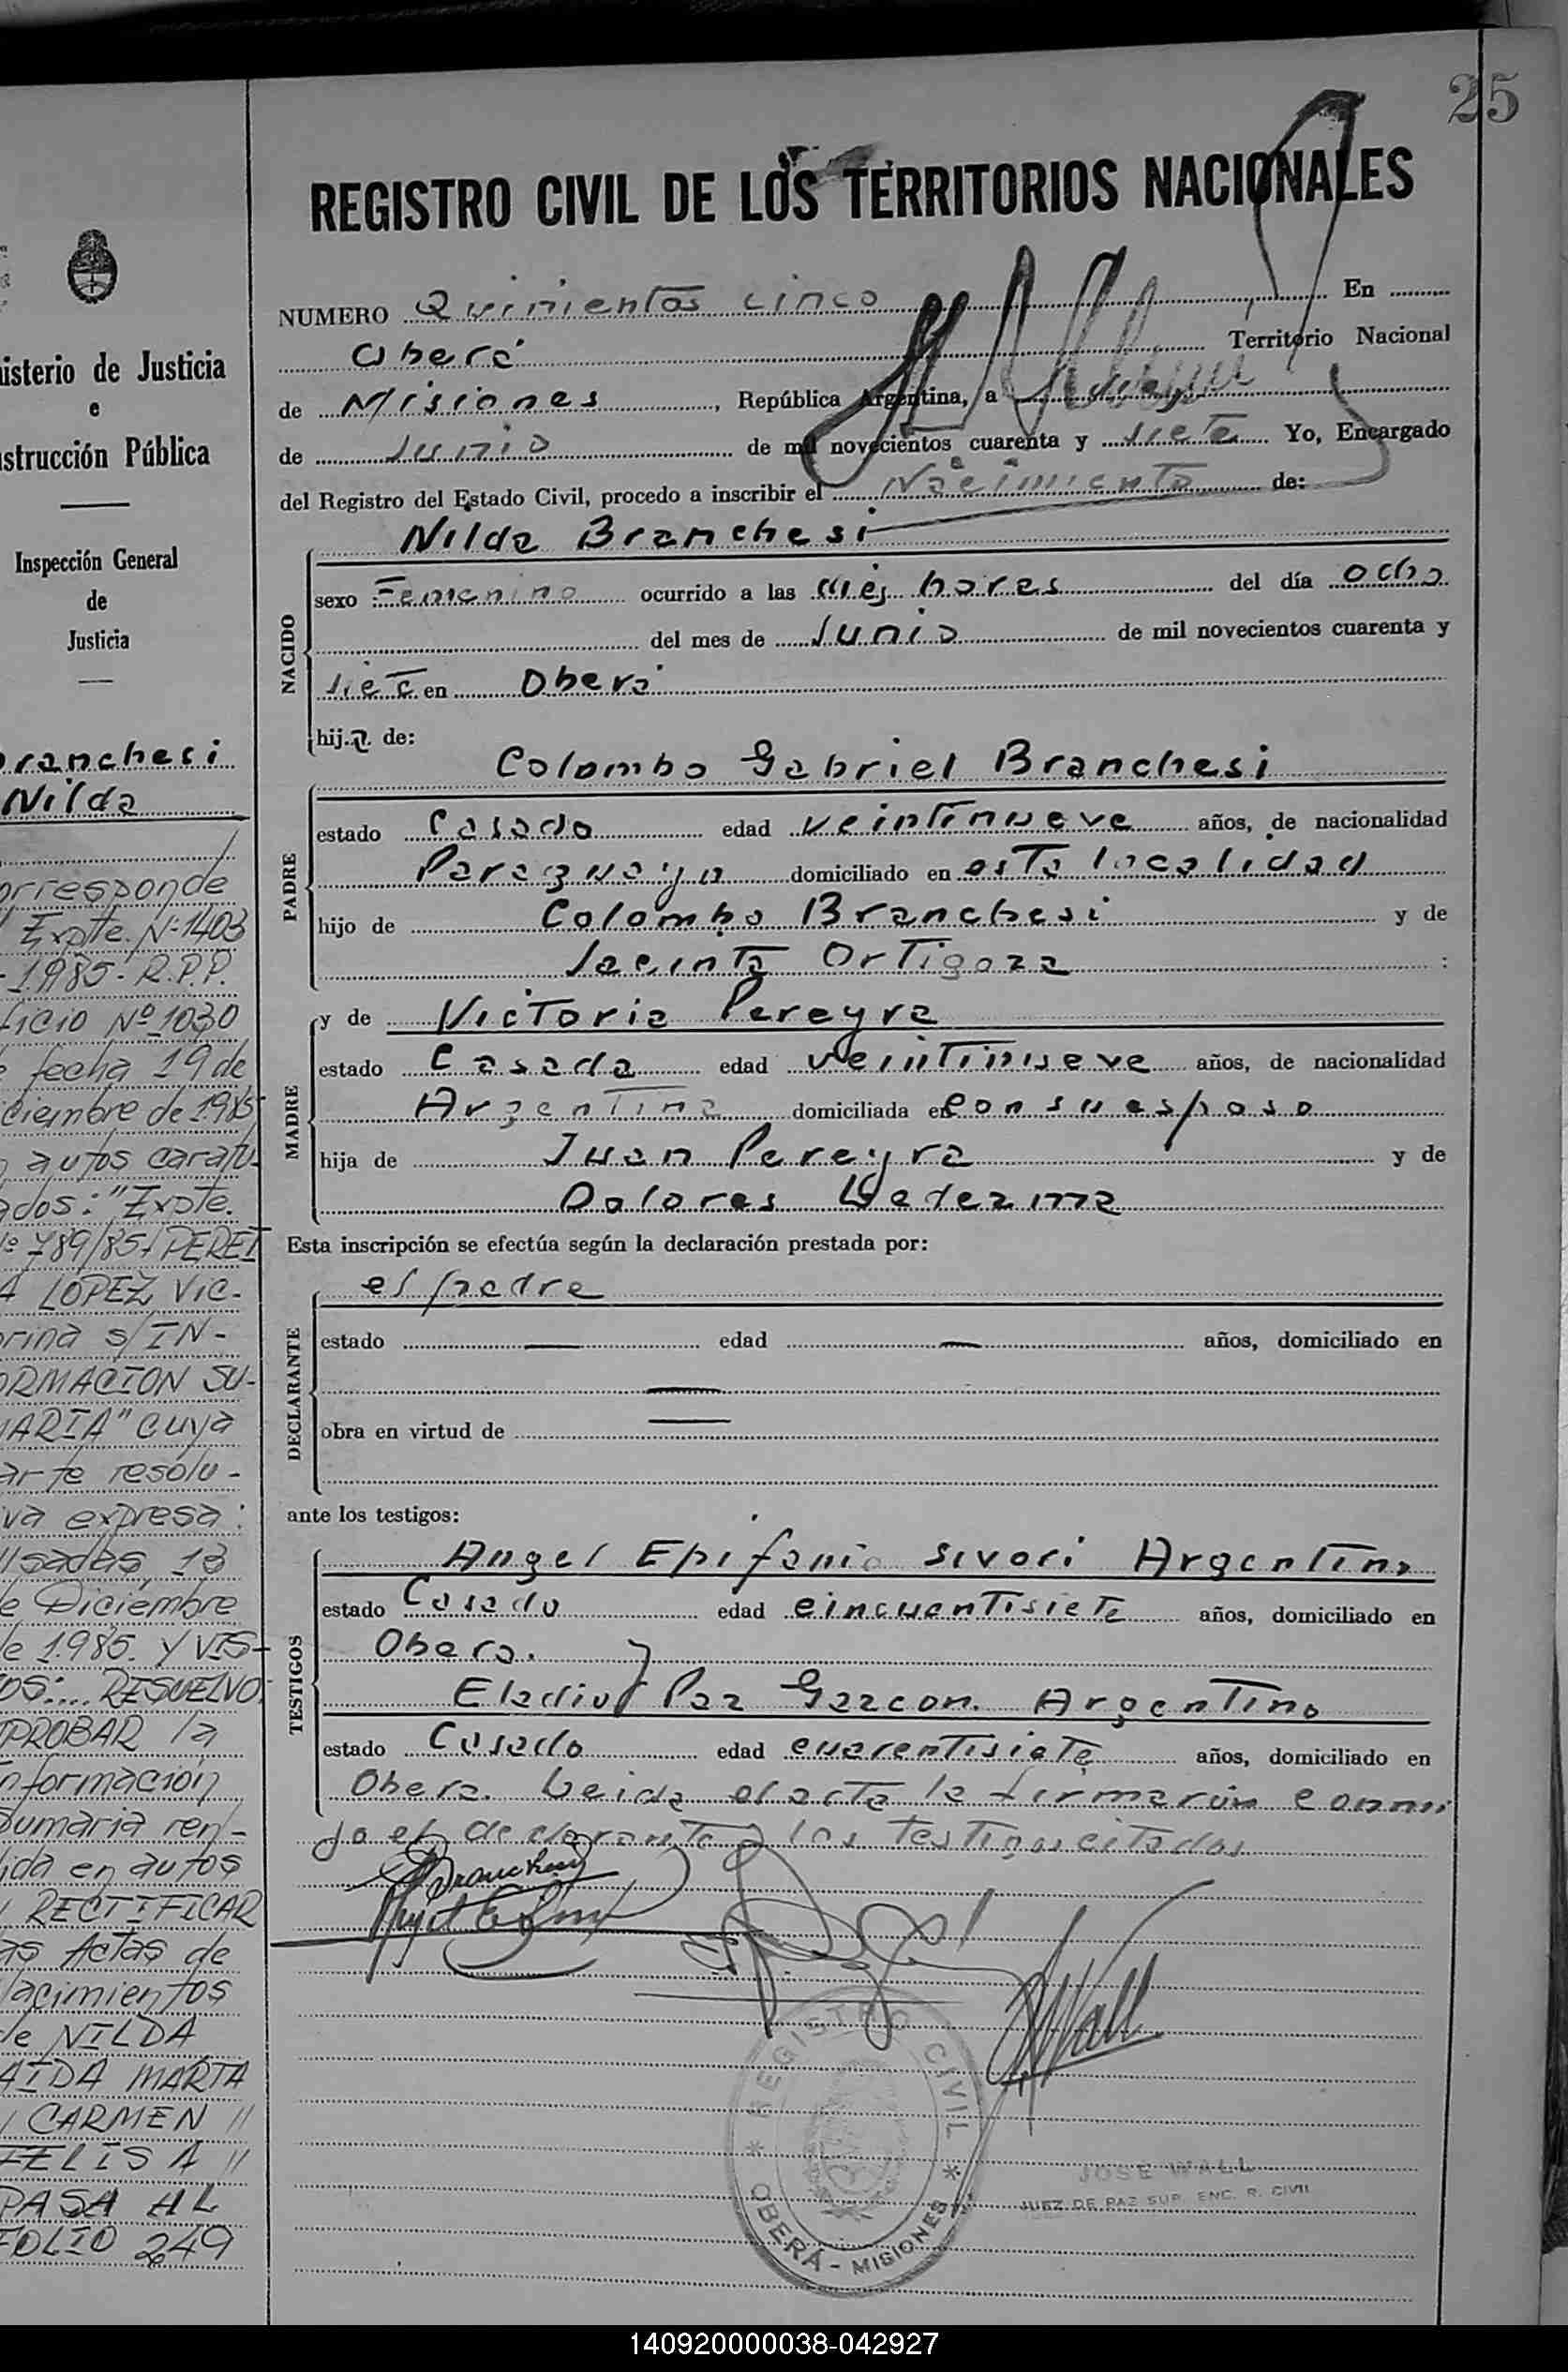 25
REGISTRO CIVIL DE LOS TERRITORIOS NACIONALES
NUMERO Quinientos cinco En
Oberá Territorio Nacional
de Misiones, República Argentina, a
de Junio de mil novecientos cuarenta y siete Yo, Encargado
del Registro del Estado Civil, procedo a inscribir el Nacimiento de:
NACIDO
Nilda Branchesi
sexo Femenino ocurrido a las diez horas del día ocho
del mes de Junio de mil novecientos cuarenta y
siete en Oberá
hija de:
PADRE
Colombo Gabriel Branchesi
estado Casado edad veintinueve años, de nacionalidad
Paraguaya domiciliado en esta localidad
hijo de Colombo Branchesi y de
Jacinta Ortigoza
MADRE
y de Victoria Pereyra
estado Casada edad veintinueve años, de nacionalidad
Argentina domiciliada en con su esposo
hija de Juan Pereyra y de
Dolores Ledezma
Esta inscripción se efectúa según la declaración prestada por:
DECLARANTE
el padre
estado — edad — años, domiciliado en
—
obra en virtud de —
ante los testigos:
TESTIGOS
Angel Epifanio Sivori Argentino
estado Casado edad cincuentisiete años, domiciliado en
Obera. y
Eladio Paz Garcon. Argentino
estado Casado edad cuarentisiete años, domiciliado en
Obera. Leida el acta la firmaron conmi
go el declarante y los testigos citados
Branchesi
JWall
REGISTRO CIVIL
* OBERÁ - MISIONES *
JOSE WALL
JUEZ DE PAZ SUP. ENC. R. CIVIL
isterio de Justicia
e
strucción Pública
Inspección General
de
Justicia
ranchesi
Nilda
orresponde
Expte. N-1403
1985- R.P.P.
ficio Nº 1030
e fecha 19 de
ciembre de 1985
autos caratu-
ados: "Expte.
º 789/85/ PEREI
A LOPEZ Vic-
orina s/IN-
ORMACION SU-
ARIA" cuya
arte resolu-
va expresa:
sadas, 13
e Diciembre
e 1985. Y VIS-
OS:.... RESUELVO:
PROBAR la
nformación
Sumaria ren-
ida en autos
RECTIFICAR
as Actas de
acimientos
de NILDA
AIDA MARTA
CARMEN //
FELISA //
PASA AL
FOLIO 249
140920000038-042927